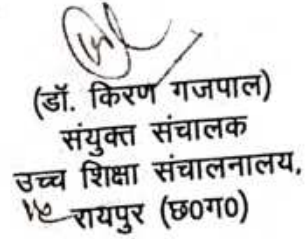 (डॉ. किरण गजपाल)
संयुक्त संचालक
उच्च शिक्षा संचालनालय,
रायपुर (छ0ग0)